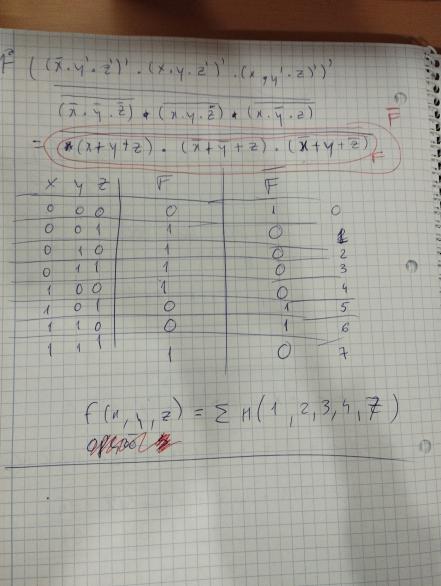 F ( (x̄·y'·z')' · (x·y·z')' · (x,y'·z)')'
(x̄·ȳ·z̄) · (x·y·z̄) · (x·ȳ·z) F̄
= (x+y+z) · (x̄+ȳ+z) · (x̄+y+z̄) F
x y z F F̄
0 0 0 0 1 0
0 0 1 1 0 1
0 1 0 1 0 2
0 1 1 1 0 3
1 0 0 1 0 4
1 0 1 0 1 5
1 1 0 0 1 6
1 1 1 1 0 7
f(x,y,z) = Σ m(1,2,3,4,7)